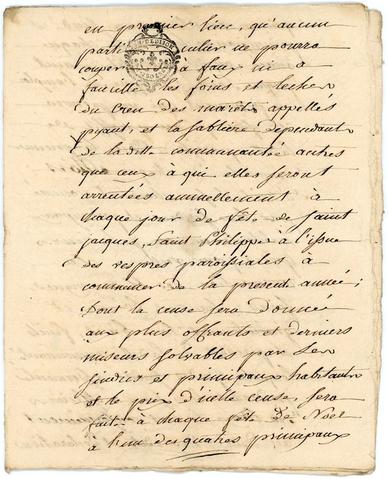 en premier lieu, qu'aucun
particulier ne pourra
couper à faux ni à
faucille les foins et lecher
du Creu des marêts appellés
et la sablière dependant
de la ditte communautée autres
que ceux à qui elles seront
arrentées annuellement à
chaque jour de fête de saint
jacques, Saint Philippe à l'issue
des vespres paroissiales à
commencer de la presente année;
dont la cense sera donnée
aux plus offrants et derniers
miseurs solvables par Les
sindics et principaux habitants
et le prix d'icelle cense, sera
fait à chaque fête de Noel
à l'un des quatres principaux